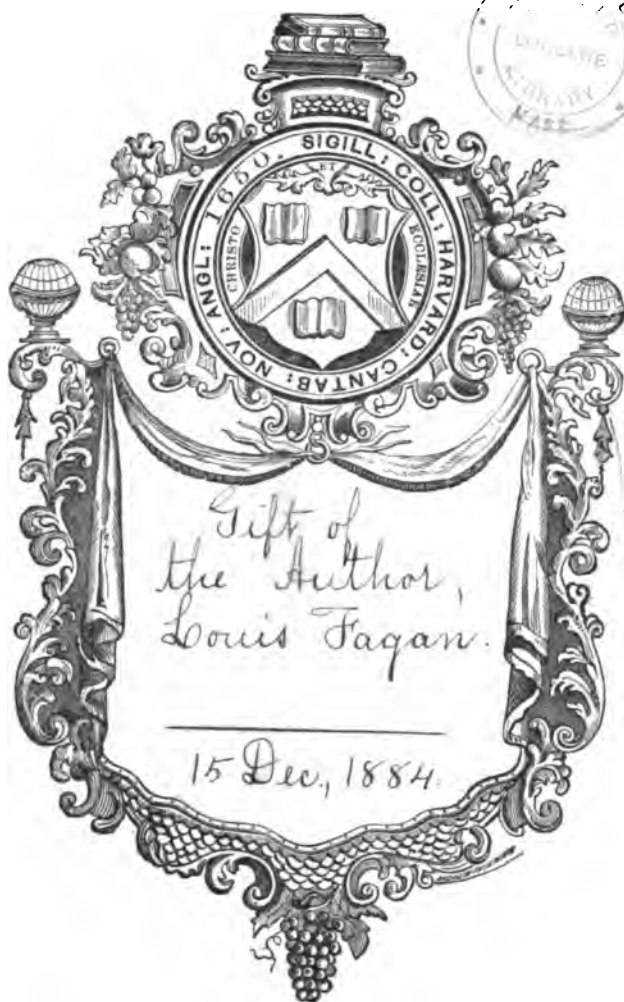 SIGILL: COLL: HARVARD: CANTAB: NOV: ANGL: 1650.
ET
CHRISTO
ECCLESIAE
Gift of
the Author,
Louis Fagan.
15 Dec., 1884.